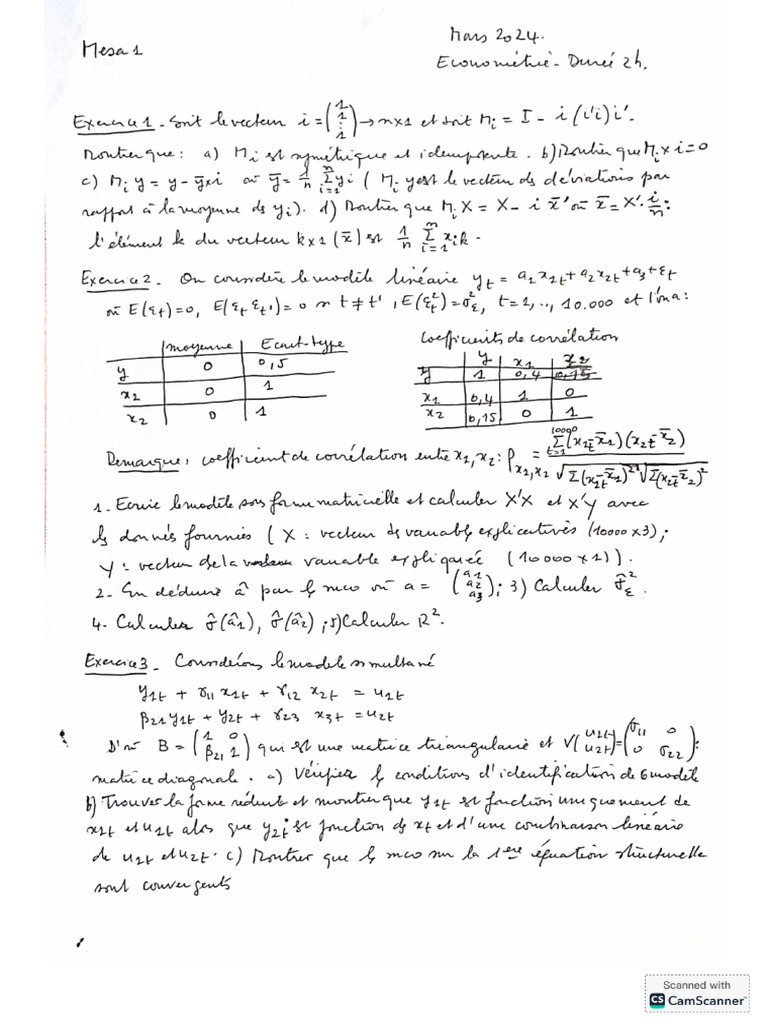 Mesa 1
Mars 2024.
Econométrie - Durée 2h.
Exercice 1 - Soit le vecteur i = (1 1 ⋮ 1) → n×1 et soit Mi = I - i (i'i) i'.
Montrer que : a) Mi est symétrique et idempotente. b) Montrer que Mi × i = 0
c) Mi y = y - ȳ × i où ȳ = 1/n Σ_{i=1}^{n} yi ( Mi y est le vecteur des déviations par
rapport à la moyenne des yi). d) Montrer que Mi X = X - i x̄' où x̄ = X'. i/n :
l'élément k du vecteur k×1 (x̄) est 1/n Σ_{i=1}^{n} xik.
Exercice 2 - On considère le modèle linéaire yt = a1 x1t + a2 x2t + a3 + εt
où E(εt) = 0, E(εt εt') = 0 si t ≠ t', E(εt²) = σε², t = 1, .., 10.000 et l'on a :
Coefficients de corrélation
moyenne Ecart-type
y 0 0,5
x1 0 1
x2 0 1
y x1 x2
y 1 0,4 0,15
x1 0,4 1 0
x2 0,15 0 1
Remarque : coefficient de corrélation entre x1, x2 : ρx1,x2 = Σ_{t=1}^{10000} (x1t - x̄1)(x2t - x̄2) / √Σ(x1t - x̄1)² √Σ(x2t - x̄2)²
1 - Ecrire le modèle sous forme matricielle et calculer X'X et X'Y avec
les données fournies ( X : vecteur des variables explicatives (10000 × 3) ;
Y : vecteur de la variable expliquée (10000 × 1) ).
2 - En déduire â par les mco où a = (a1 a2 a3) ; 3) Calculer σ̂ε².
4 - Calculer σ̂(â1), σ̂(â2) ; 5) Calculer R².
Exercice 3 - Considérons le modèle simultané
y1t + γ11 x1t + γ12 x2t = u1t
β21 y1t + y2t + γ23 x3t = u2t
D'où B = (1 0 β21 1) qui est une matrice triangulaire et V(u1t u2t) = (σ11 0 0 σ22) :
matrice diagonale. a) Vérifier les conditions d'identification de ce modèle
b) Trouver la forme réduite et montrer que y1t est fonction uniquement de
x1t et u1t alors que y2t est fonction des xt et d'une combinaison linéaire
de u1t et u2t. c) Montrer que les mco sur la 1ère équation structurelle
sont convergents
Scanned with
CS CamScanner